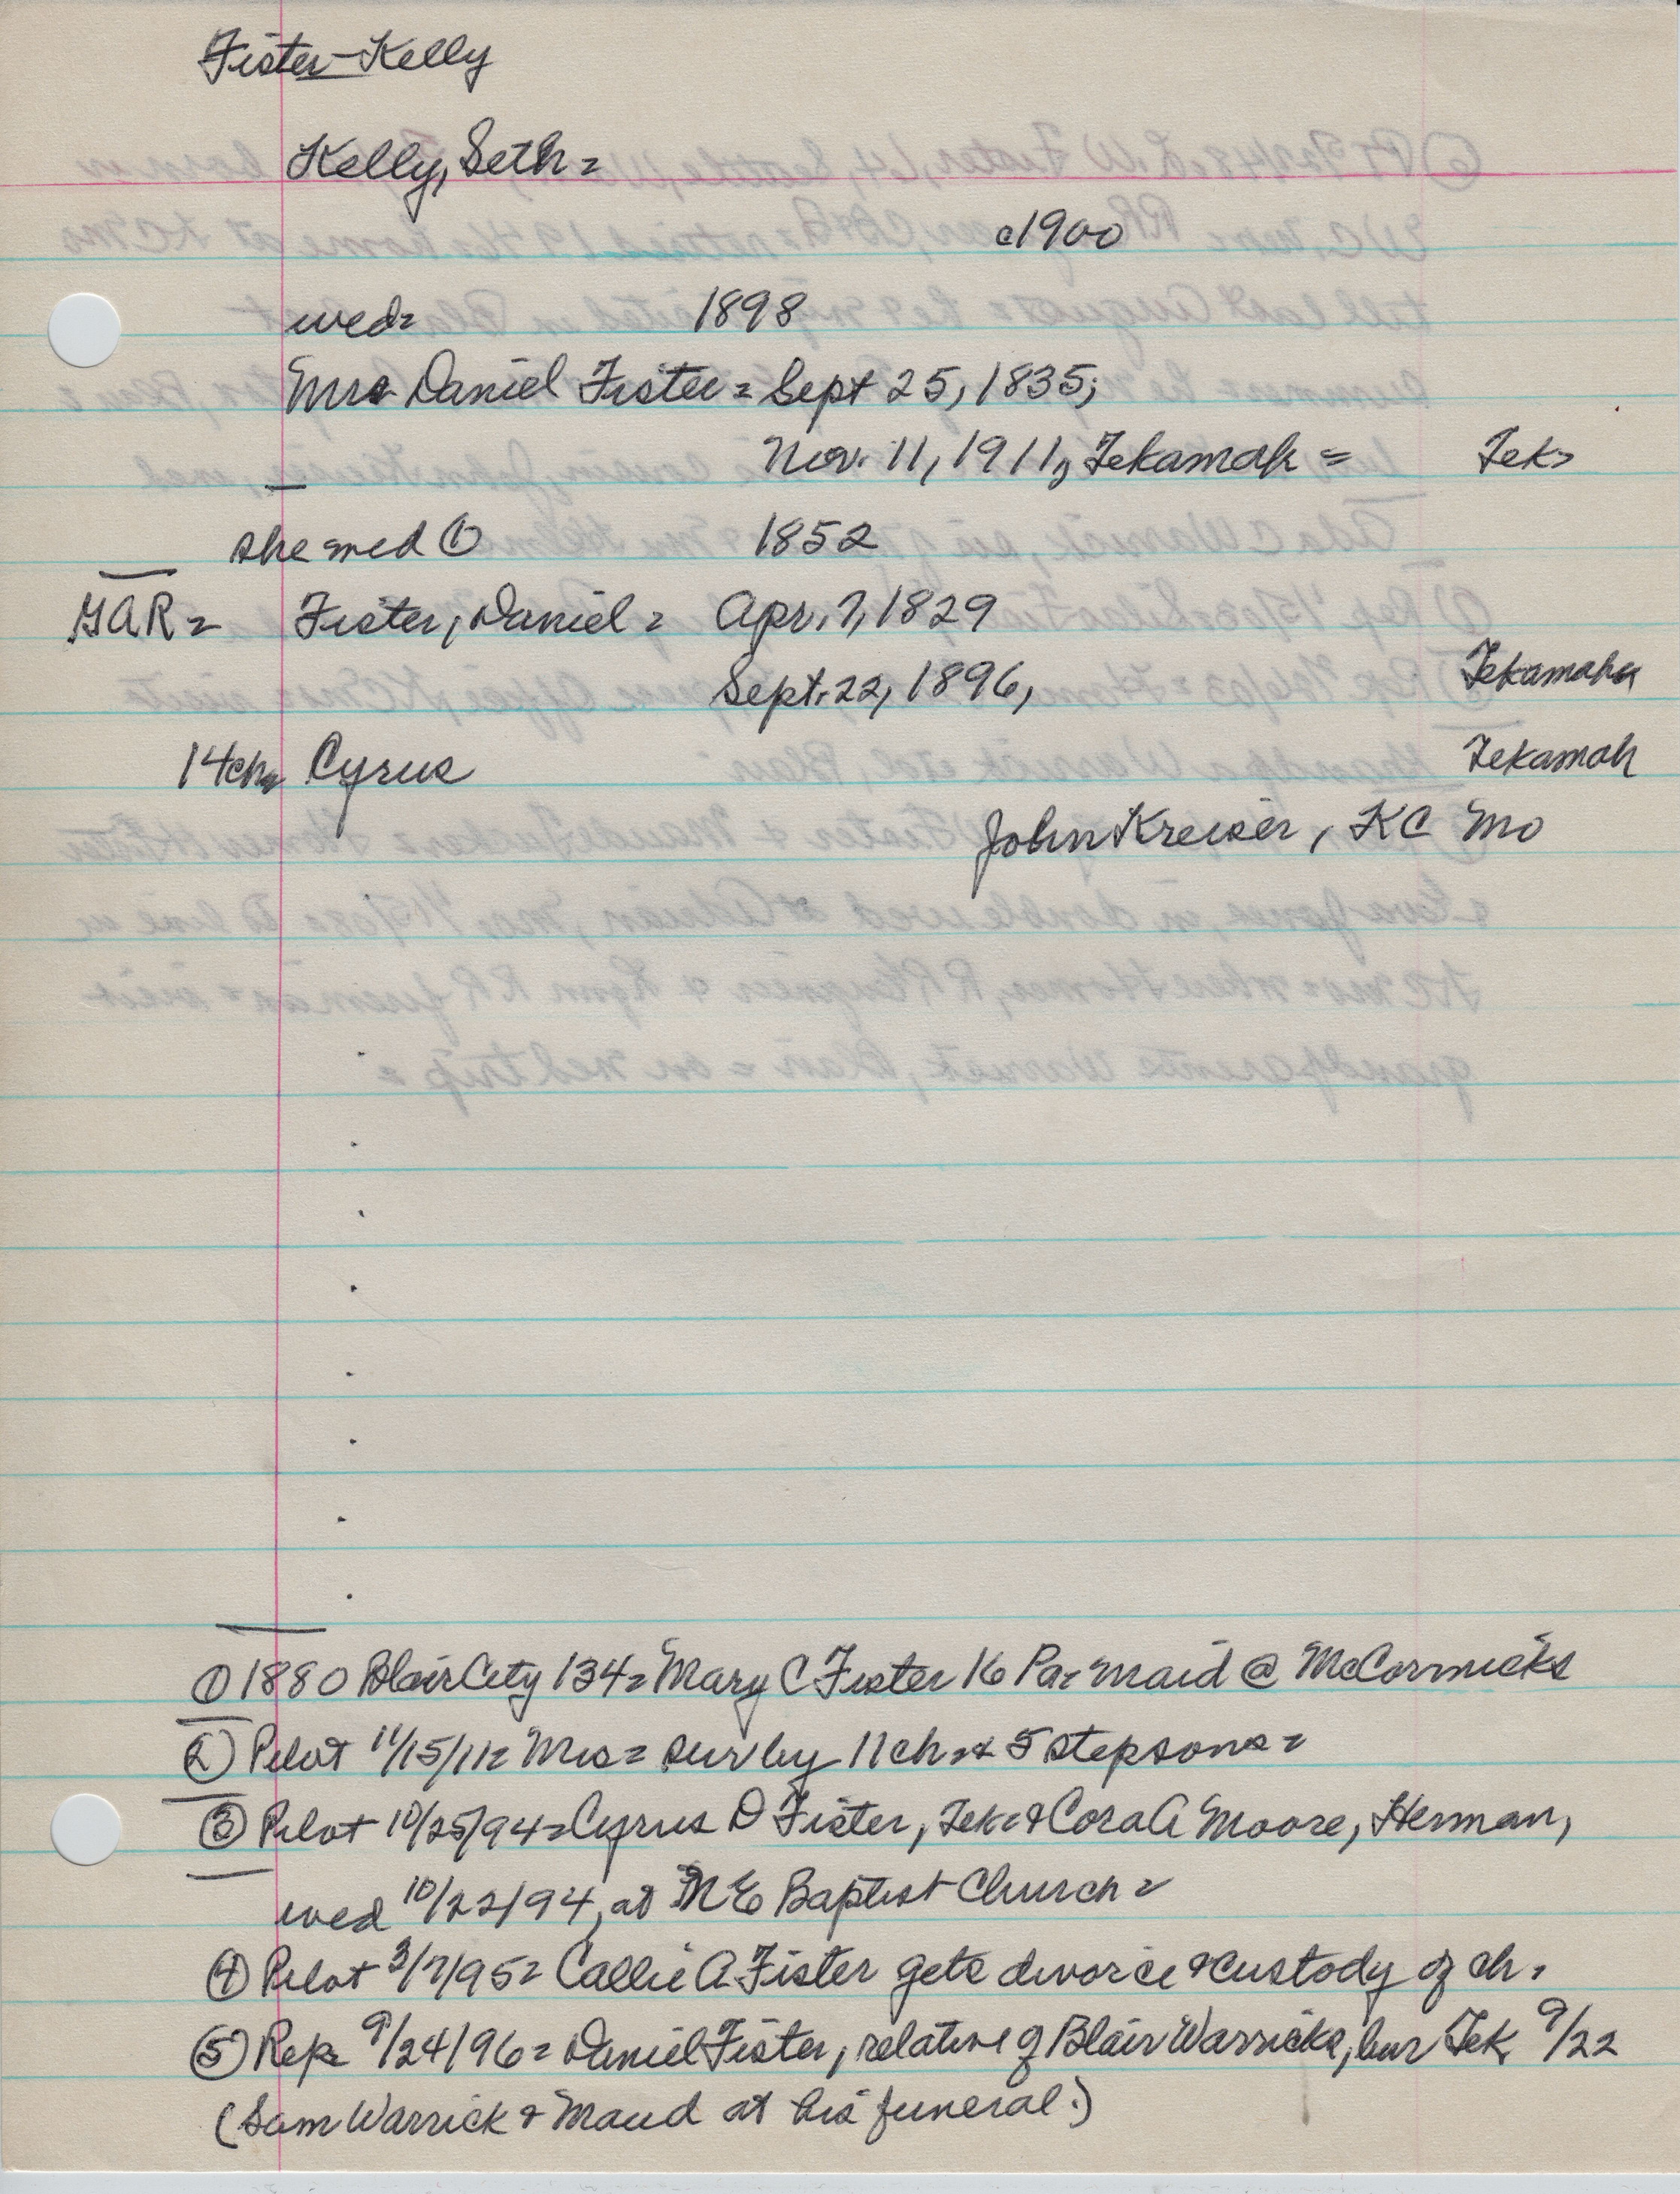 Fister-Kelly
Kelly, Seth =
c1900
wed= 1898
Mrs Daniel Fister = Sept 25, 1835;
Nov. 11, 1911, Tekamah = Tek=
she wed ① 1852
GAR = Fister, Daniel = Apr. 7, 1829
Sept. 22, 1896, Tekamah=
14ch= Cyrus Tekamah
John Kreiser, KC Mo
① 1880 Blair City 134= Mary C Fister 16 Pa= maid @ McCormicks
② Pilot 11/15/11= Mrs= surv by 11 ch= & 5 stepsons=
③ Pilot 10/25/94= Cyrus D Fister, Tek= & Cora A Moore, Herman,
wed 10/22/94, at ME Baptist Church=
④ Pilot 3/7/95= Callie A Fister gets divorce & custody of ch.
⑤ Rep= 9/24/96= Daniel Fister, relative of Blair Warricks, bur Tek 9/22
(Sam Warrick & Maud at his funeral.)